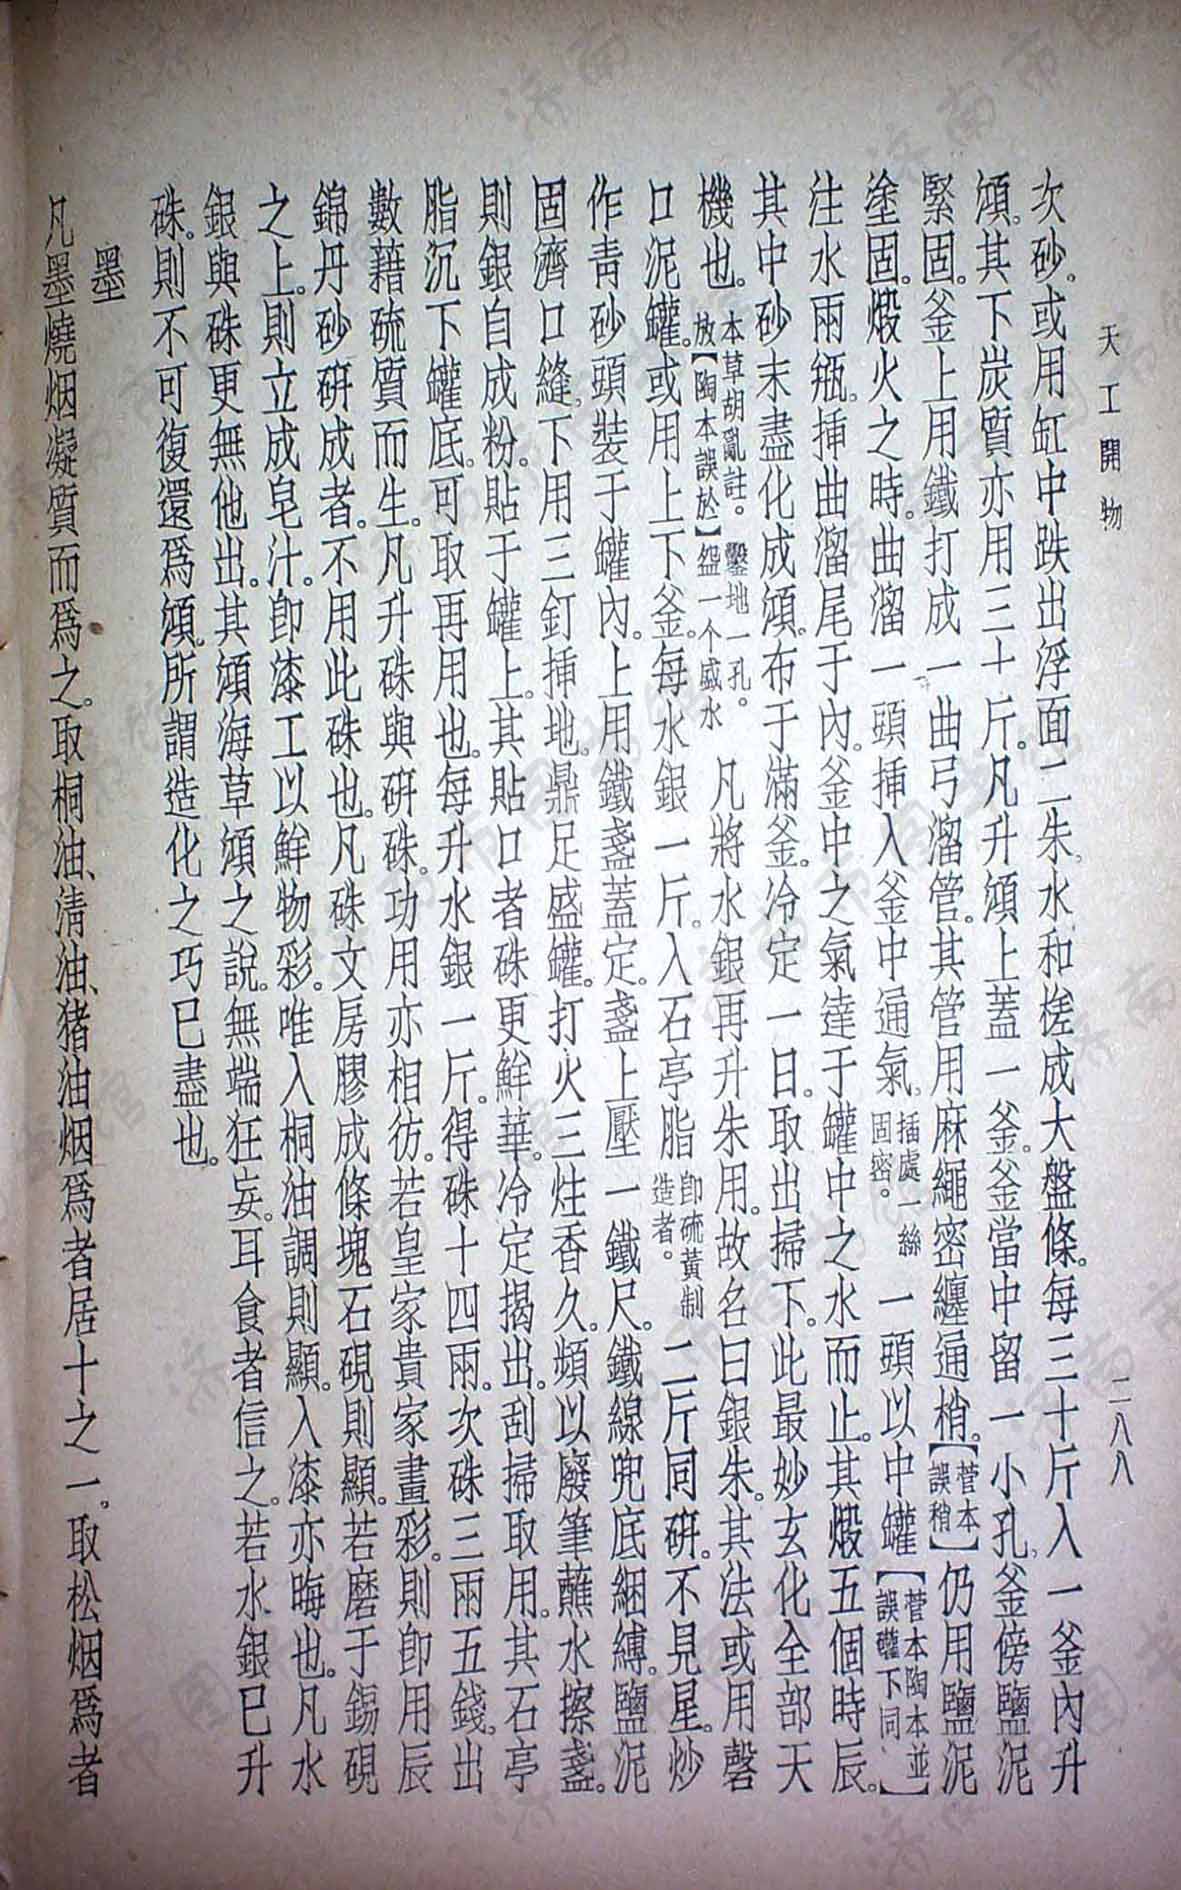 天工開物
二八八
次砂。或用缸中跌出浮面二朱。水和槎成大盤條。每三十斤入一釜內升
澒。其下炭質亦用三十斤。凡升澒上蓋一釜。釜當中留一小孔。釜傍鹽泥
緊固。釜上用鐵打成一曲弓溜管。其管用麻繩密纏通梢。【菅本誤稍】仍用鹽泥
塗固。煅火之時。曲溜一頭挿入釜中通氣。插處一絲固密。一頭以中罐【菅本陶本並誤確下同】
注水兩瓶。挿曲溜尾于內。釜中之氣達于罐中之水而止。其煅五個時辰。
其中砂末盡化成澒。布于滿釜。冷定一日。取出掃下。此最妙玄化全部天
機也。本草胡亂註。鑿地一孔。放【陶本誤於】盌一个盛水 凡將水銀再升朱用。故名曰銀朱。其法或用磬
口泥罐。或用上下釜。每水銀一斤。入石亭脂卽硫黃制造者。二斤同硏。不見星。炒
作靑砂頭裝于罐內。上用鐵盞蓋定。盞上壓一鐵尺。鐵線兜底綑縛。鹽泥
固濟口縫。下用三釘挿地。鼎足盛罐。打火三炷香久。頻以廢筆蘸水擦盞。
則銀自成粉。貼于罐上。其貼口者硃更鮮華。冷定揭出。刮掃取用。其石亭
脂沉下罐底。可取再用也。每升水銀一斤。得硃十四兩。次硃三兩五錢。出
數藉硫質而生。凡升硃與硏硃。功用亦相彷。若皇家貴家畫彩。則卽用辰
錦丹砂硏成者。不用此硃也。凡硃文房膠成條塊。石硯則顯。若磨于錫硯
之上。則立成皂汁。卽漆工以鮮物彩。唯入桐油調則顯。入漆亦晦也。凡水
銀與硃更無他出。其澒海草澒之說。無端狂妄。耳食者信之。若水銀已升
硃。則不可復還爲澒。所謂造化之巧已盡也。
墨
凡墨燒烟凝質而爲之。取桐油、淸油、猪油烟爲者居十之一。取松烟爲者